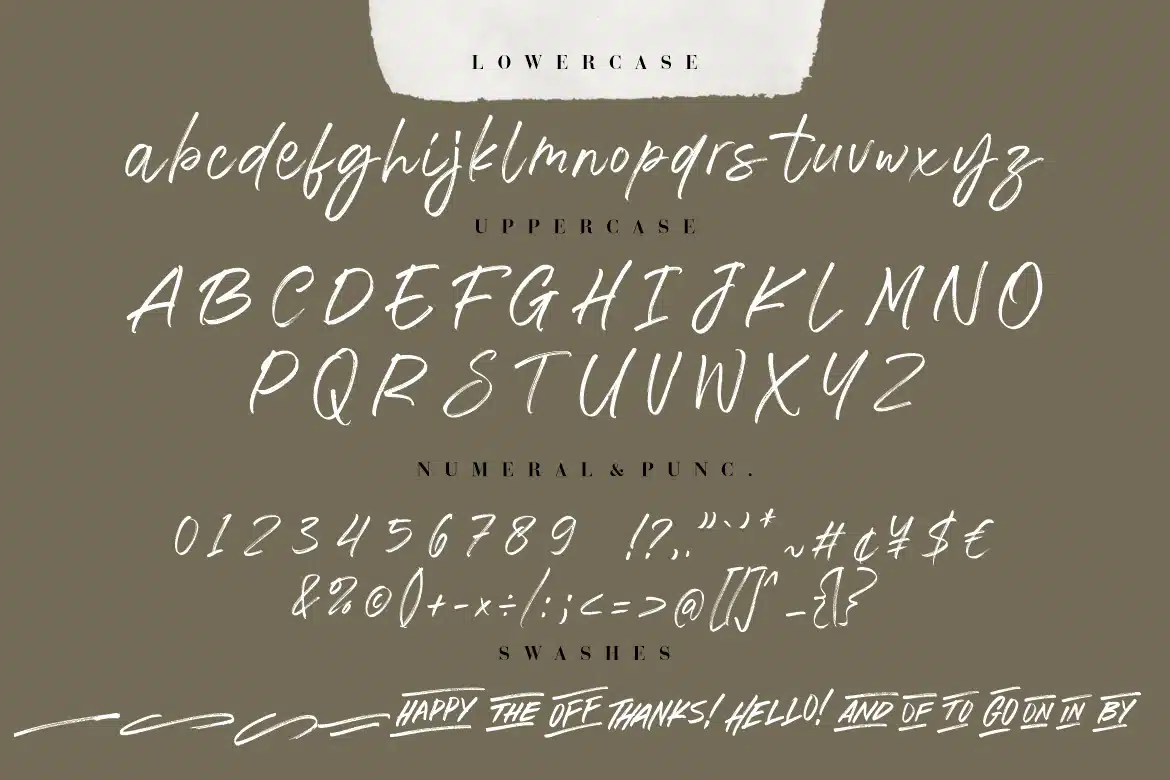 LOWERCASE
abcdefghijklmnopqrstuvwxyz
UPPERCASE
ABCDEFGHIJKLMNO
PQRSTUVWXYZ
NUMERAL&PUNC.
0123456789 !?,."`'* ~#¢¥$€
&%©()+-x÷/:;<=>@[\]^_{|}
SWASHES
HAPPY THE OFF THANKS! HELLO! AND OF TO GO ON IN BY